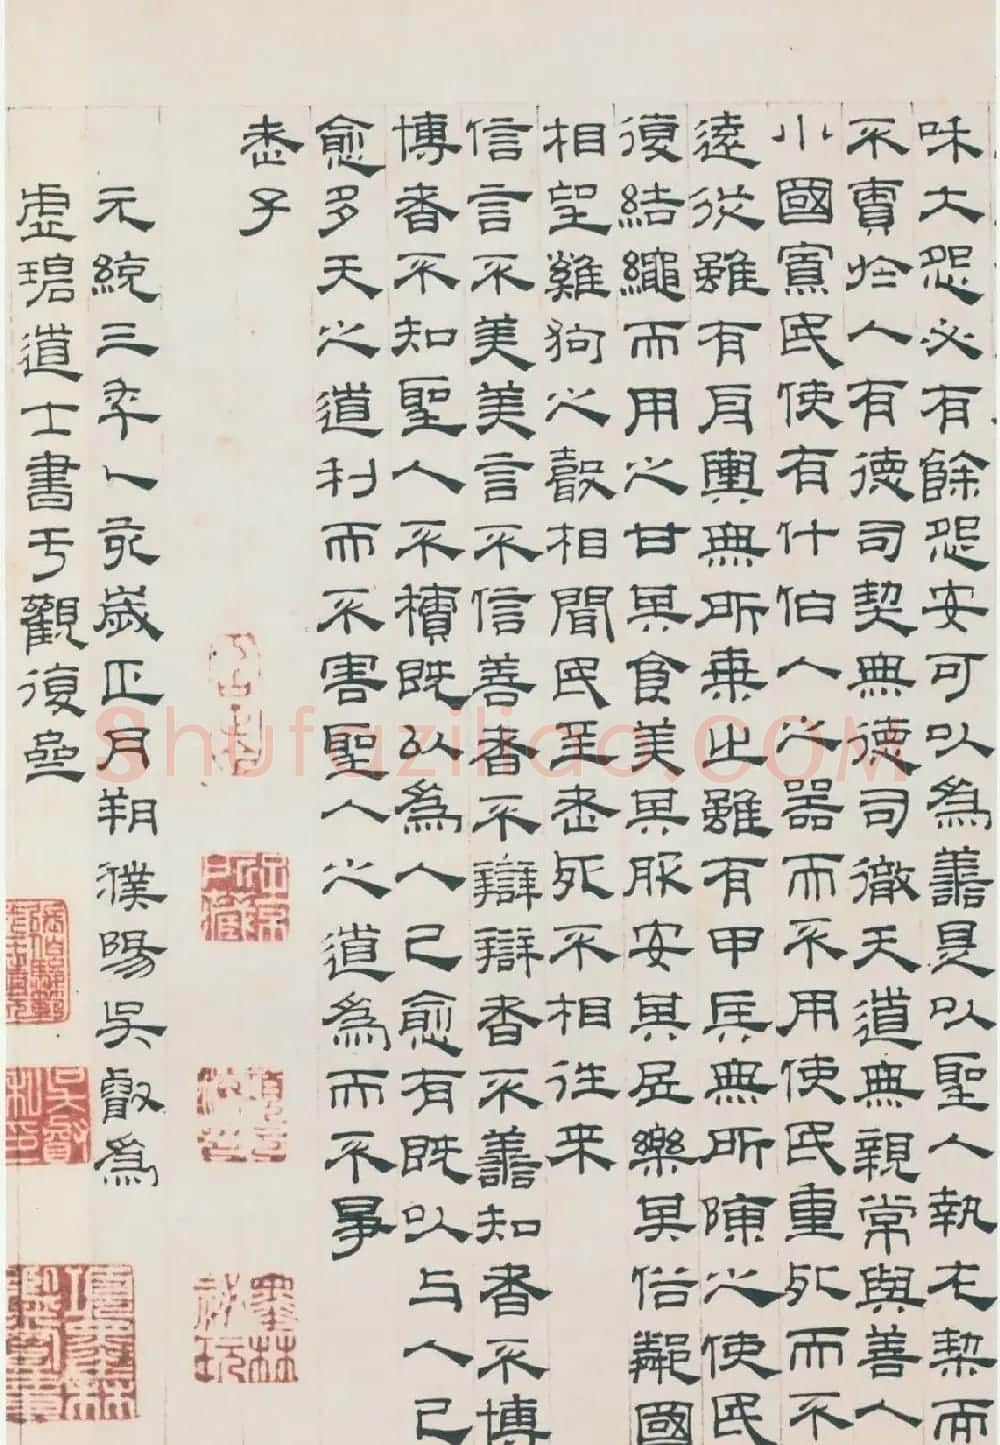 和大怨必有餘怨安可以為善是以聖人執左契而
不責於人有德司契無德司徹天道無親常與善人
小國寡民使有什伯人之器而不用使民重死而不
遠徙雖有舟輿無所乘之雖有甲兵無所陳之使民
復結繩而用之甘其食美其服安其居樂其俗鄰國
相望雞狗之聲相聞民至老死不相往來
信言不美美言不信善者不辯辯者不善知者不博
博者不知聖人不積既以為人己愈有既以与人己
愈多天之道利而不害聖人之道為而不爭
老子
墨林秘玩
元統三年乙亥歲正月朔濮陽吳叡為
虛碧道士書于觀復
吳叡私印
項墨林鑑賞章
Shufaziliao.COM